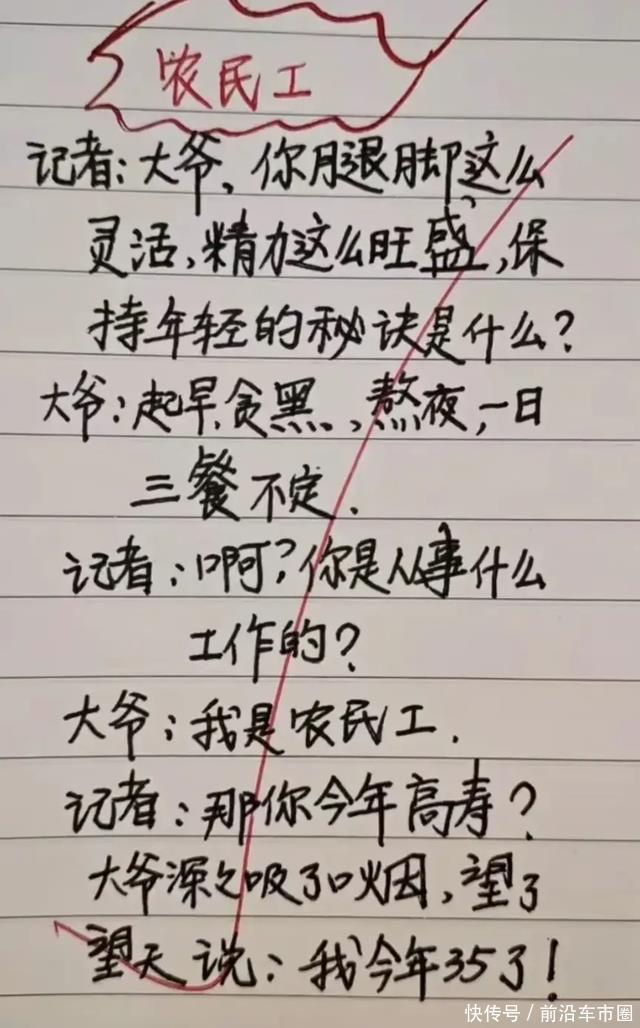 农民工
记者:大爷,你腿脚这么
灵活,精力这么旺盛,保
持年轻的秘诀是什么?
大爷:起早贪黑、熬夜,一日
三餐不定.
记者:啊?你是从事什么
工作的?
大爷:我是农民工.
记者:那你今年高寿?
大爷深々吸了口烟,望了
望天说:我今年35了!
快传号/前沿车市圈